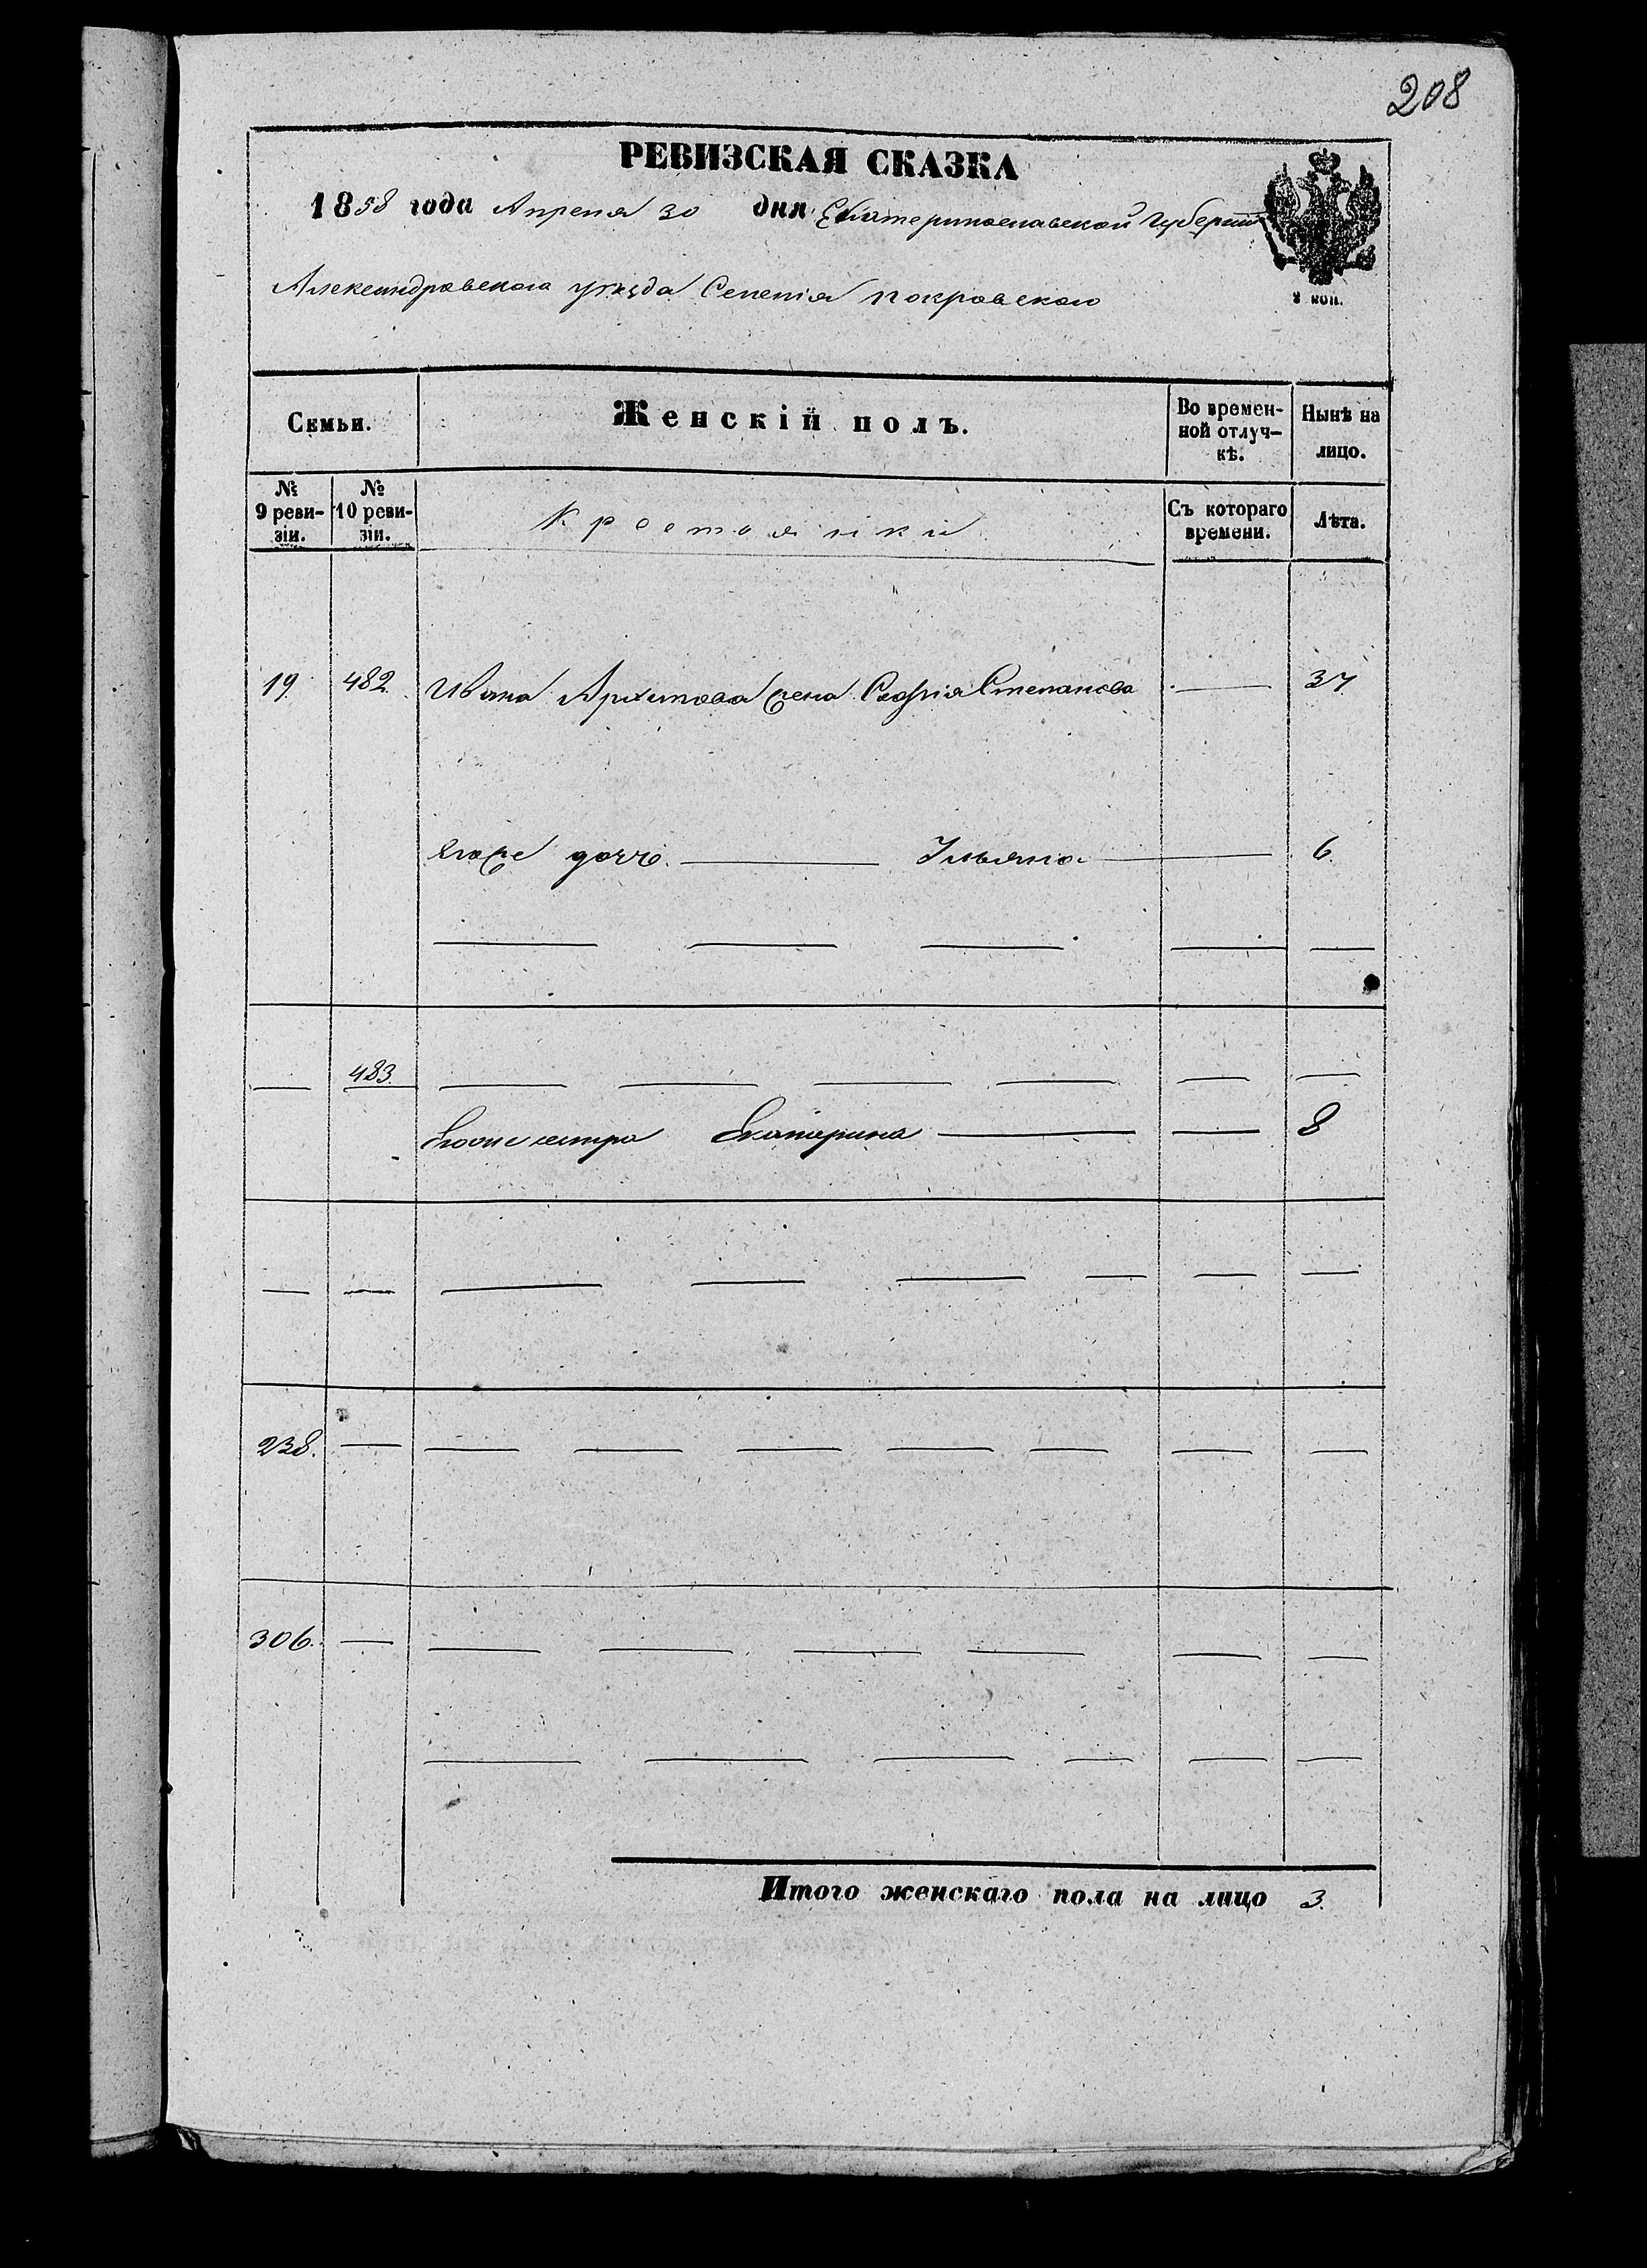 208
РЕВИЗСКАЯ СКАЗКА
1858 года Апреля 30 дня Екатеринославской Губерніи
Александровского уѣзда Селенія Покровского
Семьи. Женскій полъ. Во времен- Нынѣ на
ной отлуч- лицо.
кѣ.
№ № Съ котораго Лѣта.
9 реви- 10 реви- времени.
зіи. зіи.
Крестьянки
19. 482. Ивана Архипова жена Софія Степанова — 37
его же дочь — Ульяна — 6.
— — — — —
— 483. — — — — — —
Екатерина — — 8
— — — — — — — —
238. — — — — — — — —
306. — — — — — — —
— — — — — —
Итого женскаго пола на лицо 3.
3 коп.